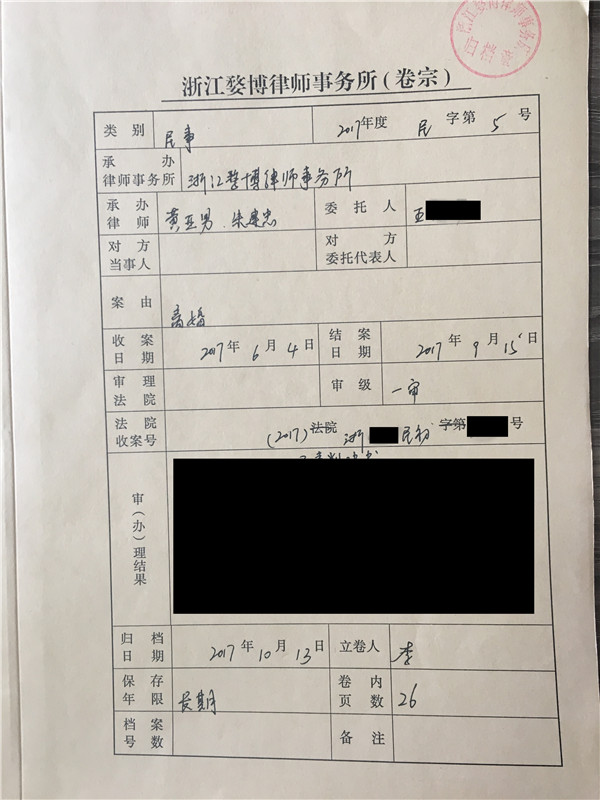 归档章
浙江婺博律师事务所（卷宗）
类别 民事 2017年度 民 字第 5 号
承办律师事务所 浙江婺博律师事务所
承办律师 黄亚男、朱建忠 委托人 王
对方当事人 对方委托代表人
案由 离婚
收案日期 2017年6月4日 结案日期 2017年9月15日
审理法院 审级 一审
法院收案号 (2017)法院 浙 民初 字第 号
审（办）理结果
归档日期 2017年10月13日 立卷人 李
保存年限 长期 卷内页数 26
档案号数 备注